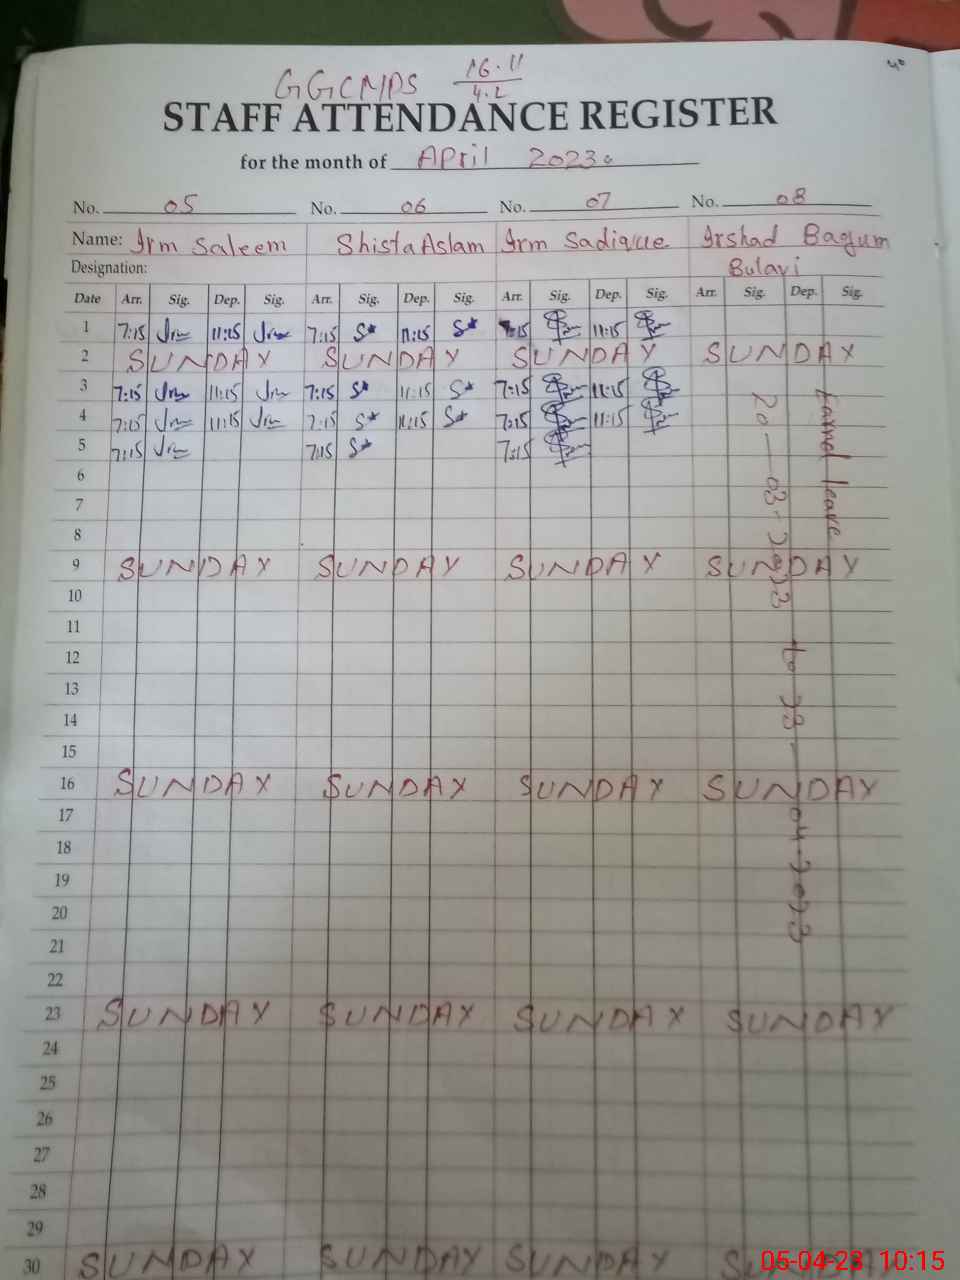 GGCMPS 16.11
4.2
STAFF ATTENDANCE REGISTER
for the month of April 2023
No. 05 No. 06 No. 07 No. 08
Name: Irm Saleem Shista Aslam Irm Sadique Irshad Bagum
Designation: Bulavi
Date Arr. Sig. Dep. Sig. Arr. Sig. Dep. Sig. Arr. Sig. Dep. Sig. Arr. Sig. Dep. Sig.
1 7:15 Irm 11:15 Irm 7:15 S* 11:15 S* 7:15 11:15
2 SUNDAY SUNDAY SUNDAY SUNDAY
3 7:15 Irm 11:15 Irm 7:15 S* 11:15 S* 7:15 11:15
4 7:15 Irm 11:15 Irm 7:15 S* 11:15 S* 7:15 11:15
5 7:15 Irm 7:15 S* 7:15
6
7
8
9 SUNDAY SUNDAY SUNDAY SUNDAY
10
11
12
13
14
15
16 SUNDAY SUNDAY SUNDAY SUNDAY
17
18
19
20
21
22
23 SUNDAY SUNDAY SUNDAY SUNDAY
24
25
26
27
28
29
30 SUNDAY SUNDAY SUNDAY SUNDAY
leave
20-03-2023 to 23-04-2023
05-04-23 10:15